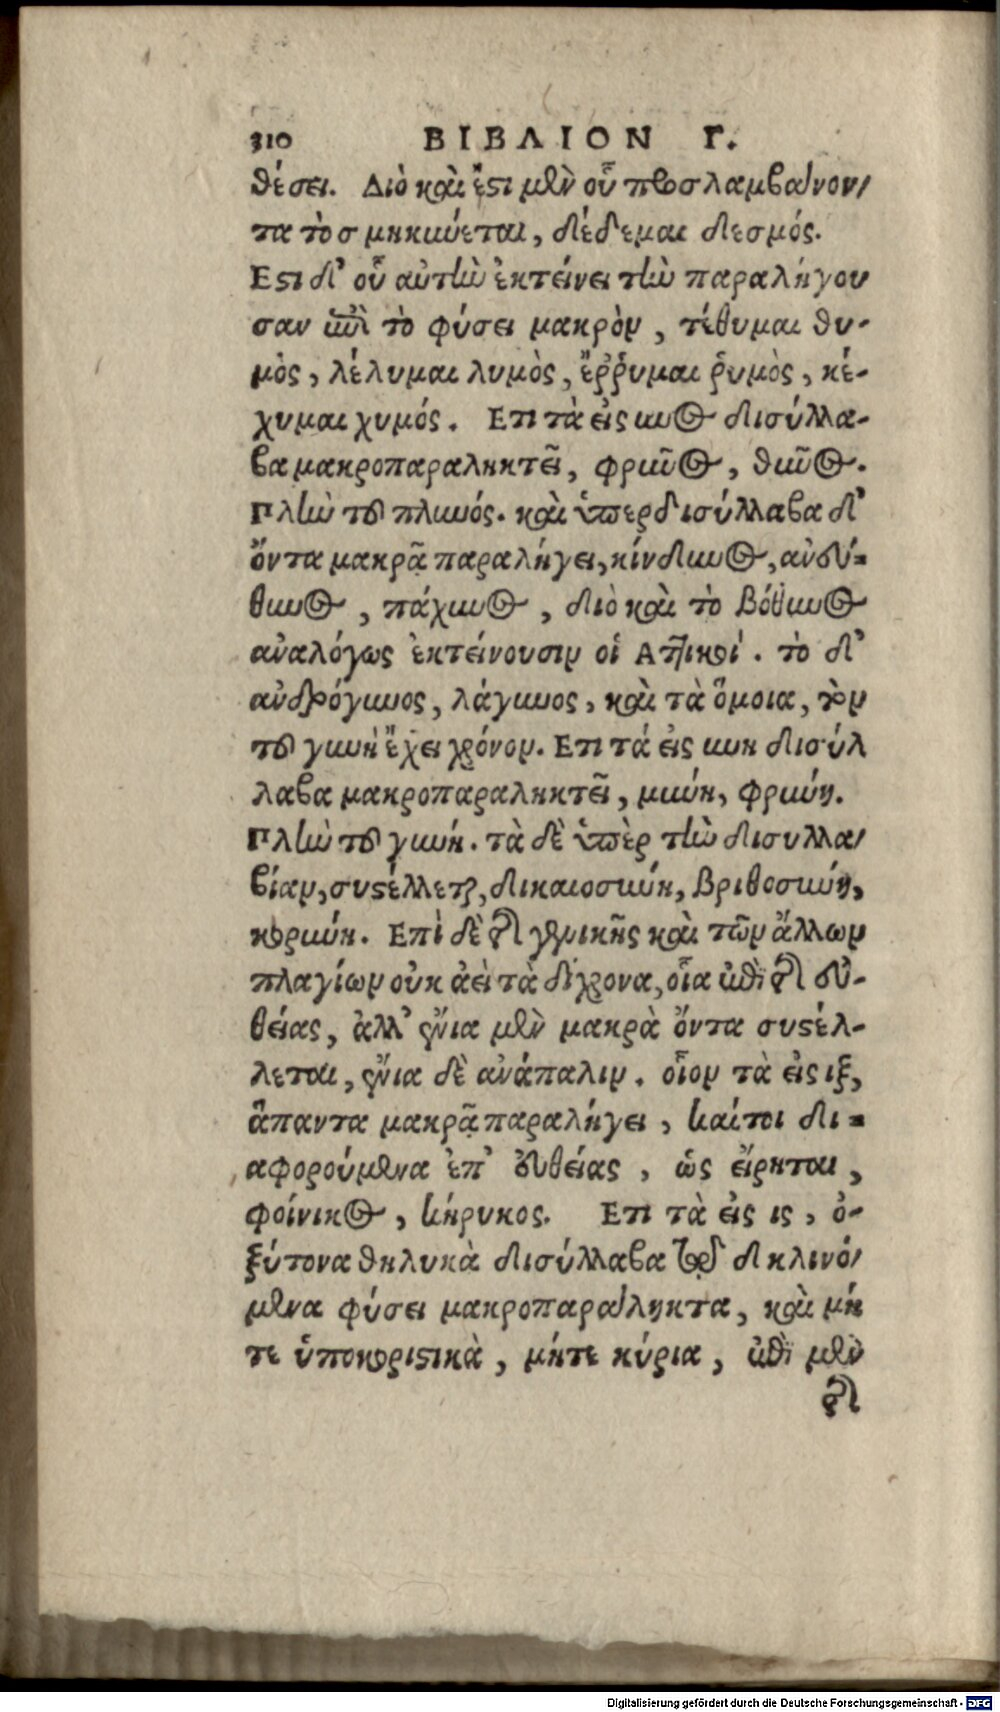 310 ΒΙΒΛΙΟΝ Γ.
θέσει. Διὸ καὶ ἔστι μὲν οὗ προσλαμβάνον/
τα τὸ σ μηκύνεται, δέδεμαι δεσμός.
Εστι δ' οὗ αὐτὴν ἐκτείνει τὴν παραλήγου
σαν ἐπὶ τὸ φύσει μακρὸν, τέθυμαι θυ-
μὸς, λέλυμαι λυμὸς, ἔῤῥυμαι ῥυμὸς, κέ-
χυμαι χυμός. Ετι τὰ εἰς υνος δισύλλα-
βα μακροπαραληκτεῖ, φρῦνος, θῦνος.
Πλὴν τοῦ πλυνός. καὶ ὑπερδισύλλαβα δ'
ὄντα μακρᾷ παραλήγει, κίνδυνος, εὔθυνος
θυνος, πάχυνος, διὸ καὶ τὸ βόθυνος
ἀναλόγως ἐκτείνουσιν οἱ Αττικοί. τὸ δ'
ἀνδρόγυνος, λάγυνος, καὶ τὰ ὅμοια, τὸν
τοῦ γυνὴ ἔχει χρόνον. Ετι τά εἰς υνη δισύλ
λαβα μακροπαραληκτεῖ, μύνη, φρύνη.
Πλὴν τοῦ γυνή. τὰ δὲ ὑπὲρ τὴν δισυλλα/
βίαν, συστέλλεται, δικαιοσύνη, βριθοσύνη,
κορύνη. Επὶ δὲ τῆς γενικῆς καὶ τῶν ἄλλων
πλαγίων οὐκ ἀεὶ τὰ δίχρονα, οἷα ἐπὶ τῆς εὐ-
θείας, ἀλλ' ἔνια μὲν μακρὰ ὄντα συστέλ-
λεται, ἔνια δὲ ἀνάπαλιν. οἷον τὰ εἰς ιξ,
ἅπαντα μακρᾷ παραλήγει, καίτοι δι=
αφορούμενα ἐπ' εὐθείας, ὡς εἴρηται,
φοίνικος, κήρυκος. Ετι τὰ εἰς ις, ὀ-
ξύτονα θηλυκὰ δισύλλαβα διὰ τοῦ δ κλινό/
μενα φύσει μακροπαράληκτα, καὶ μή
τε ὑποκοριστικὰ, μήτε κύρια, ἐπὶ μὲν
τῆς
Digitalisierung gefördert durch die Deutsche Forschungsgemeinschaft - DFG